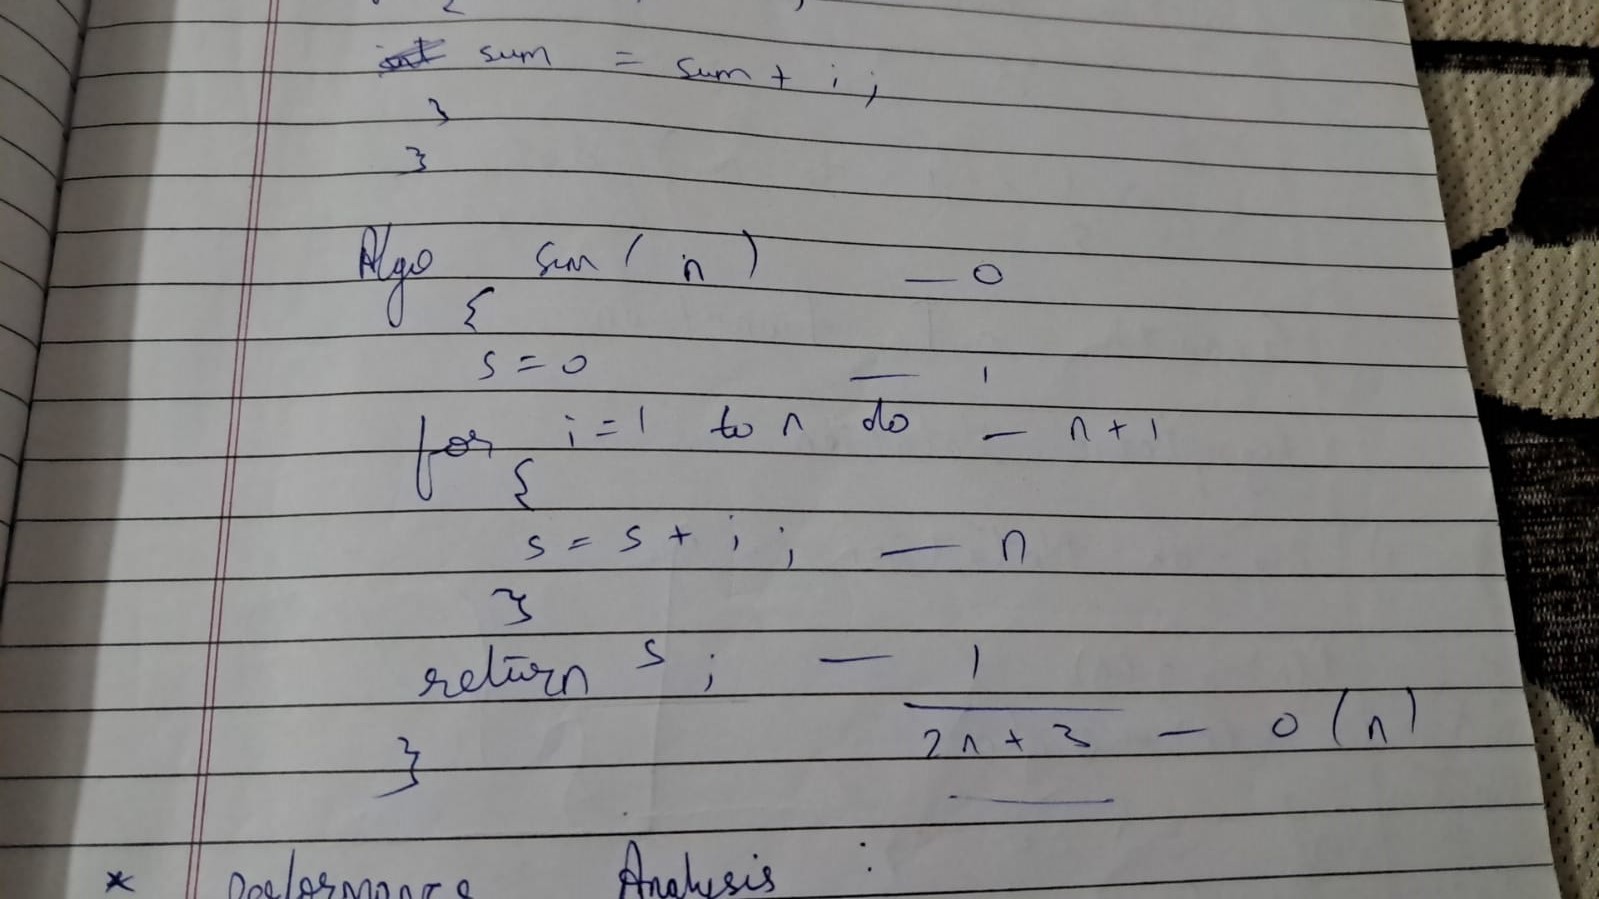 sum = sum + i ;
}
}
Algo sum ( n ) — 0
{
s = 0 — 1
for i = 1 to n do — n + 1
{
s = s + i ; — n
}
return s ; — 1
} 2n + 3 — O ( n )
* Performance Analysis :